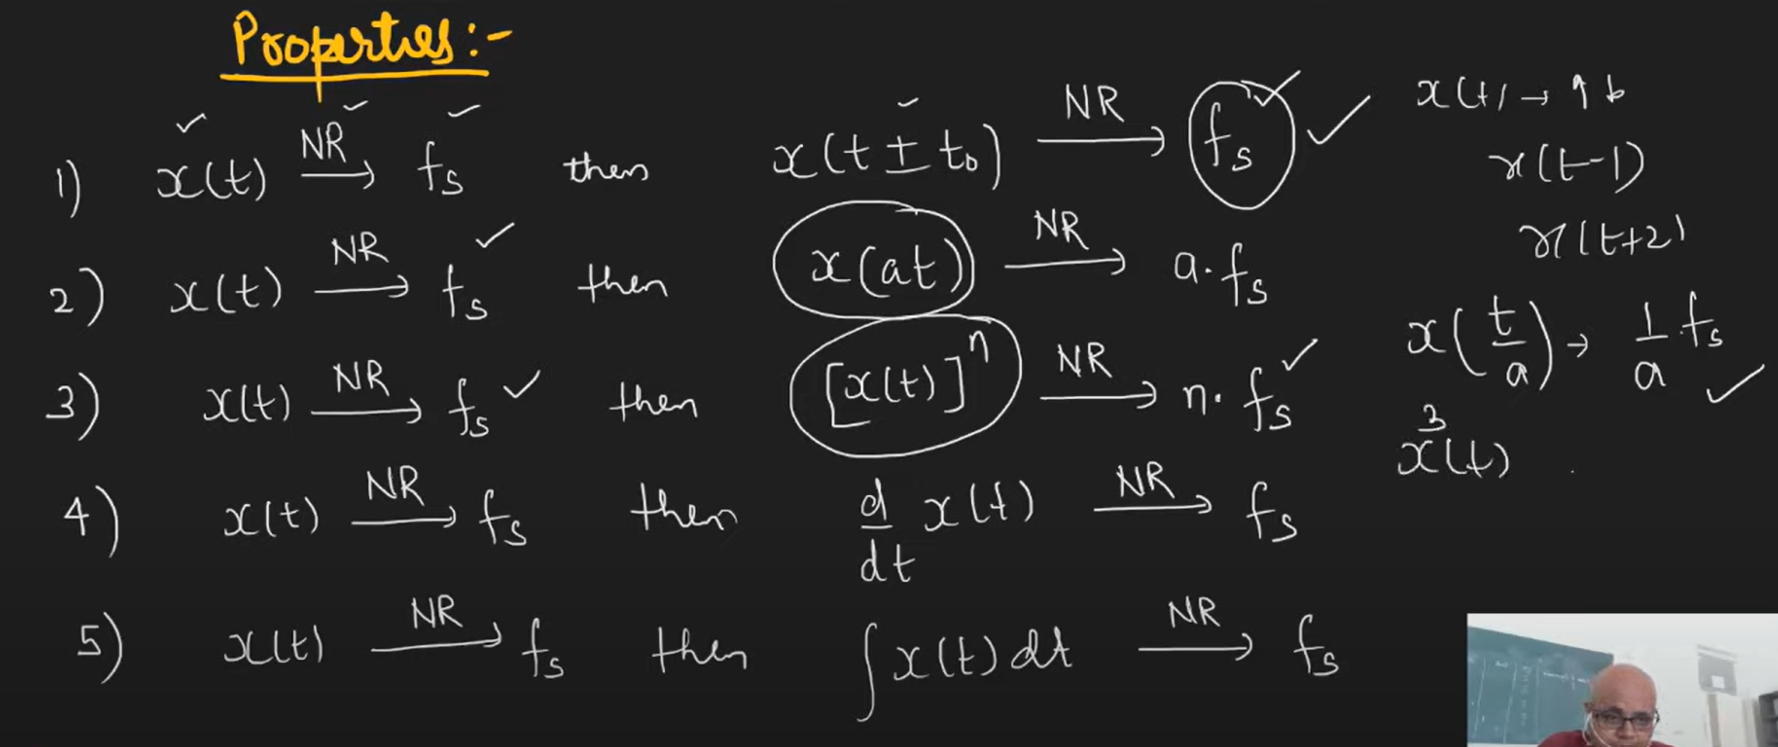 Properties:-
1) x(t) —NR→ fs then x(t ± t₀) —NR→ fs
2) x(t) —NR→ fs then x(at) —NR→ a·fs
3) x(t) —NR→ fs then [x(t)]ⁿ —NR→ n·fs
4) x(t) —NR→ fs then d/dt x(t) —NR→ fs
5) x(t) —NR→ fs then ∫x(t)dt —NR→ fs
x(t) →
x(t-1)
x(t+2)
x(t/a) → 1/a·fs
x³(t)